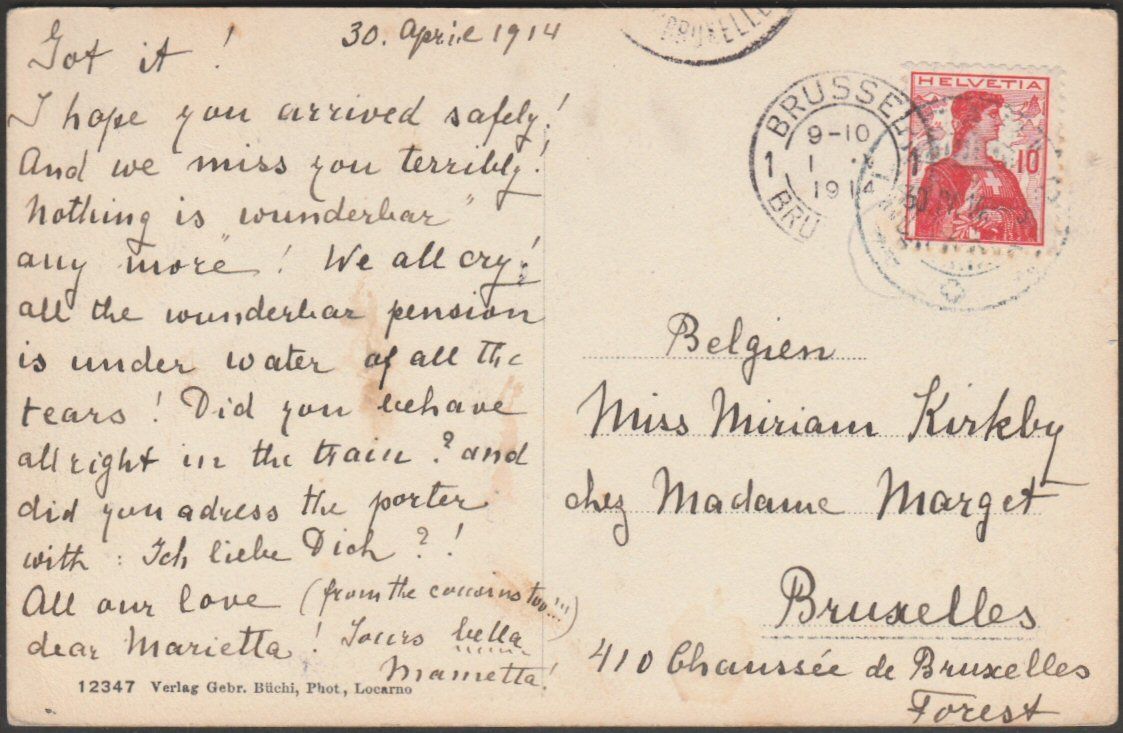 Got it !
30. April 1914
I hope you arrived safely!
And we miss you terribly!
Nothing is "wunderbar"
any more"! We all cry;
all the wunderbar pension
is under water of all the
tears! Did you behave
allright in the train? and
did you adress the porter
with: Ich liebe Dich?!
All our love (from the too!!!)
dear Marietta! Yours bella
Mametta!
12347 Verlag Gebr. Büchi, Phot, Locarno
BRUXELLE
BRUSSEL
9-10
1
1914
1 BRU
HELVETIA
10
Belgien
Miss Miriam Kirkby
chez Madame Marget
Bruxelles
410 Chaussée de Bruxelles
Forest